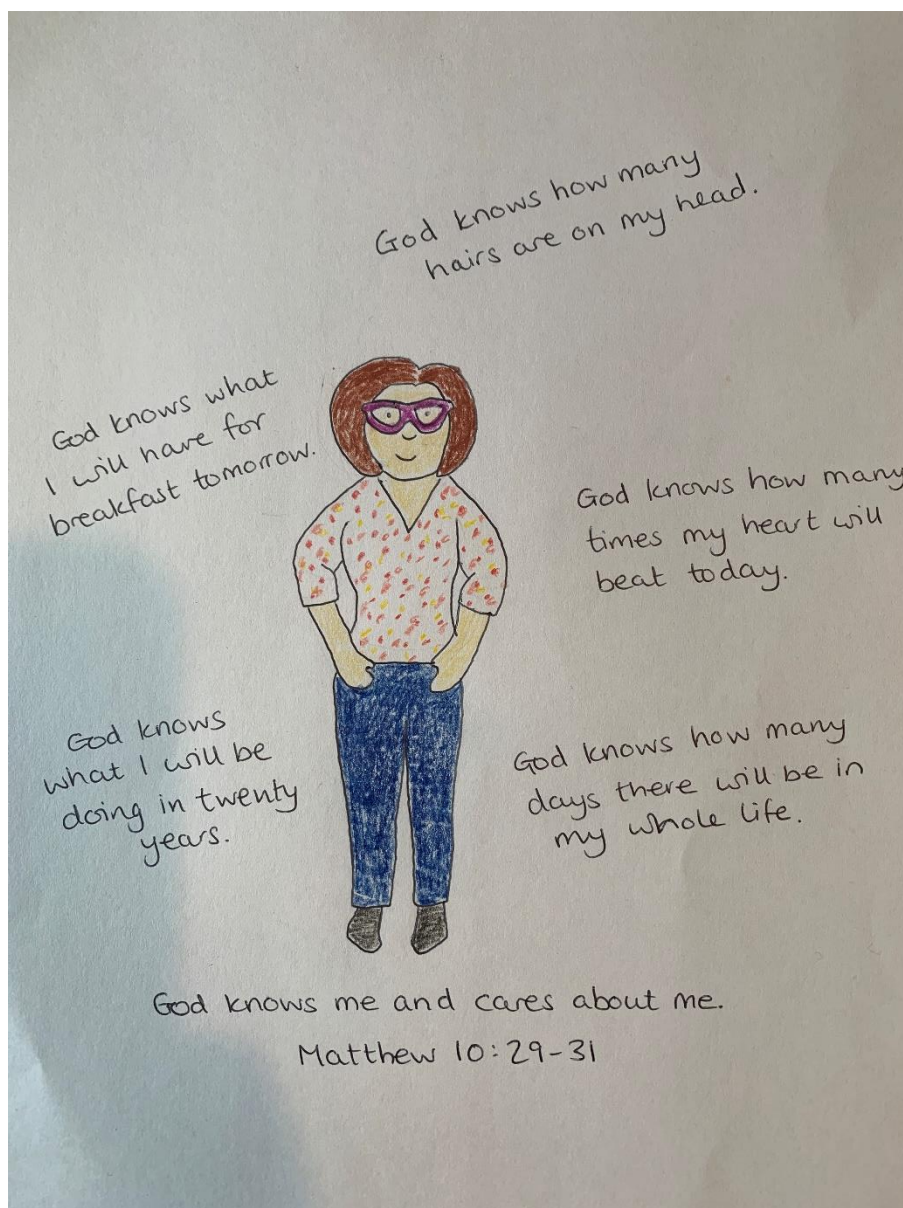 God knows how many
hairs are on my head.
God knows what
I will have for
breakfast tomorrow.
God knows how many
times my heart will
beat today.
God knows
what I will be
doing in twenty
years.
God knows how many
days there will be in
my whole life.
God knows me and cares about me.
Matthew 10:29-31